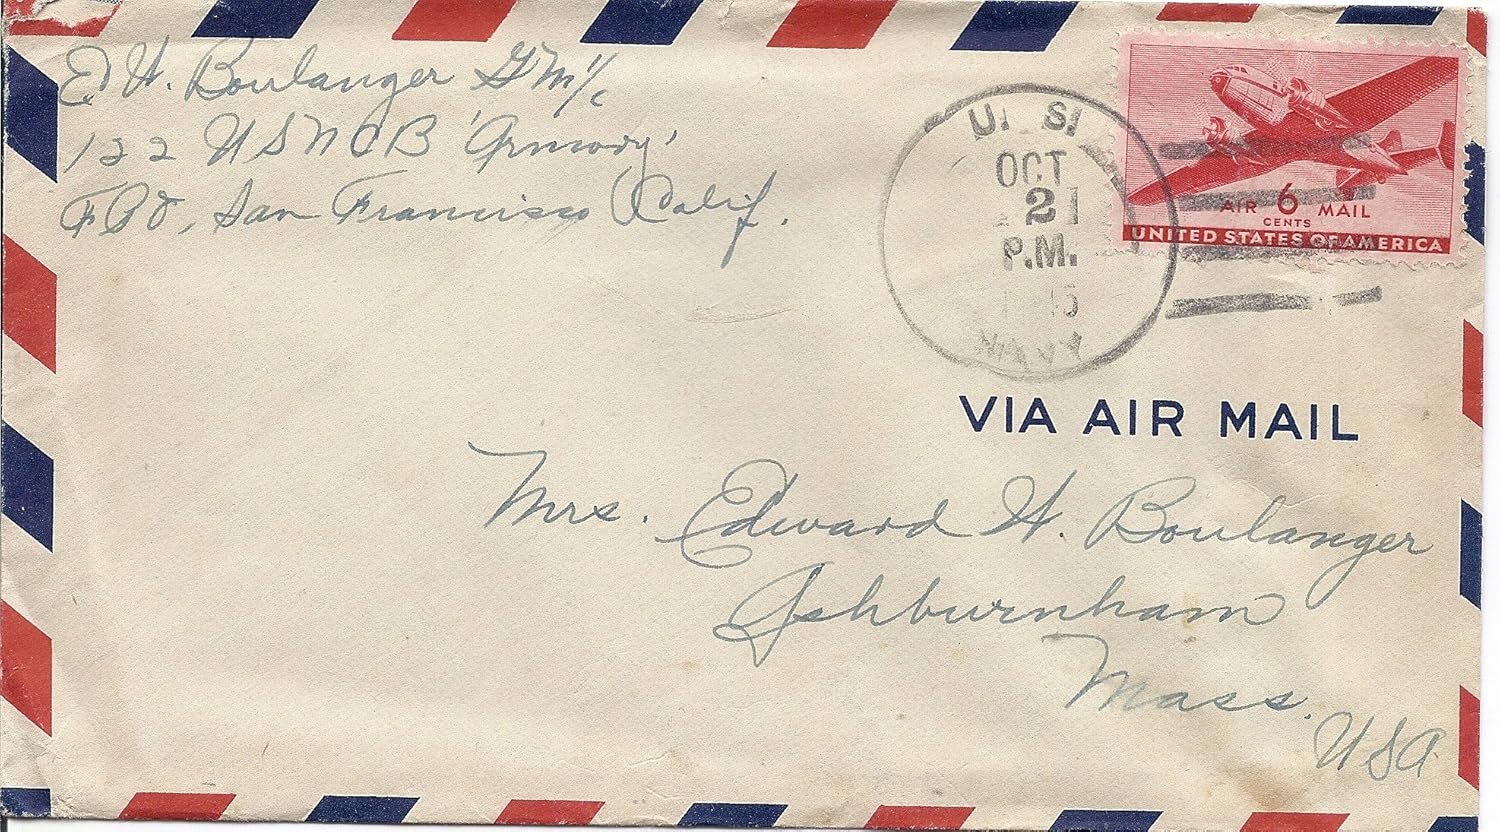 Ed H. Boulanger GM 1/c
122 USNCB 'Armory'
FPO, San Francisco Calif.
U. S.
OCT
21
P.M.
NAVY
AIR 6 MAIL
CENTS
UNITED STATES OF AMERICA
VIA AIR MAIL
Mrs. Edward H. Boulanger
Ashburnham
Mass.
USA